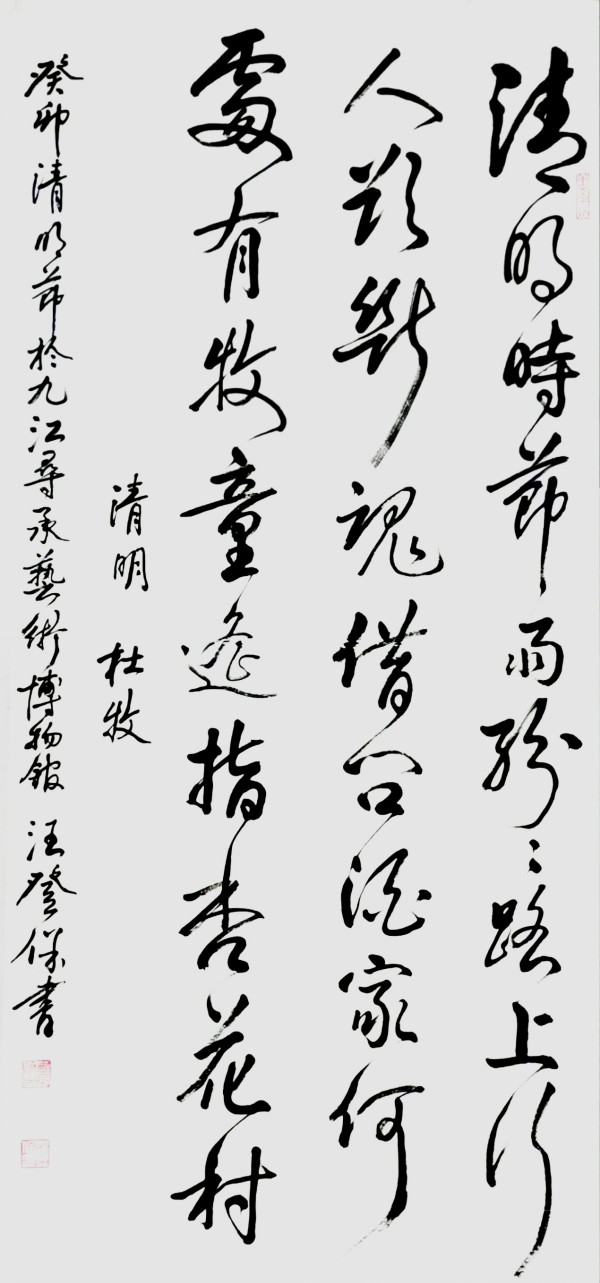 清明時節雨紛〻路上行
人欲斷魂借问酒家何
處有牧童遙指杏花村
清明 杜牧
癸卯清明节於九江尋承藝術博物館 汪登保書